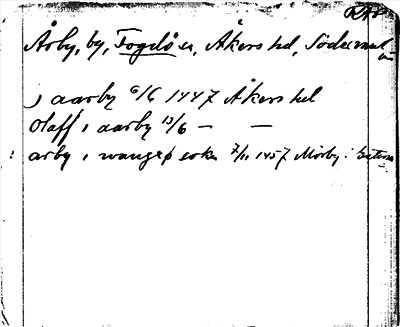 Årby, by, Fogdö sn, Åkers hd, Söderman
J aarby 6/6 1447 Åkers hd
Olaff i aarby 13/6 — —
: arby i wangø sokn 7/11 1457 Mörby i